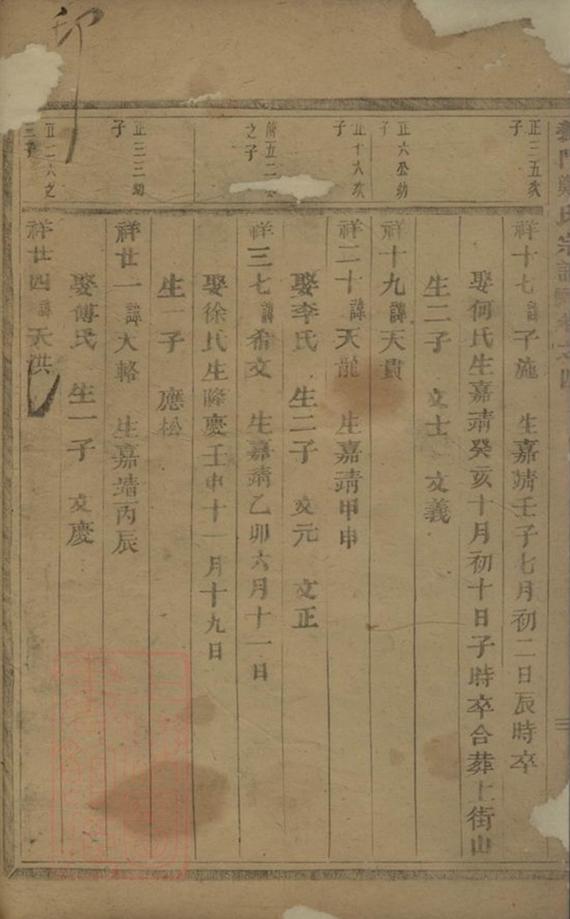 鄭氏宗譜
正三五次
子
祥十七諱子施 生嘉靖壬子七月初二日辰時卒
娶何氏生嘉靖癸亥十月初十日子時卒合葬上街山
生二子 文士 文義
正六公幼
子
祥十九諱天貴
正十六次
子
祥二十諱天龍 生嘉靖甲申
娶李氏 生二子 文元 文正
之子
祥三七諱希文 生嘉靖乙卯六月十一日
娶徐氏生隆慶壬申十一月十九日
生一子 應松
正三三幼
子
祥廿一諱大輅 生嘉靖丙辰
娶傅氏 生一子 文慶
正二六之
三子
祥廿四諱天洪